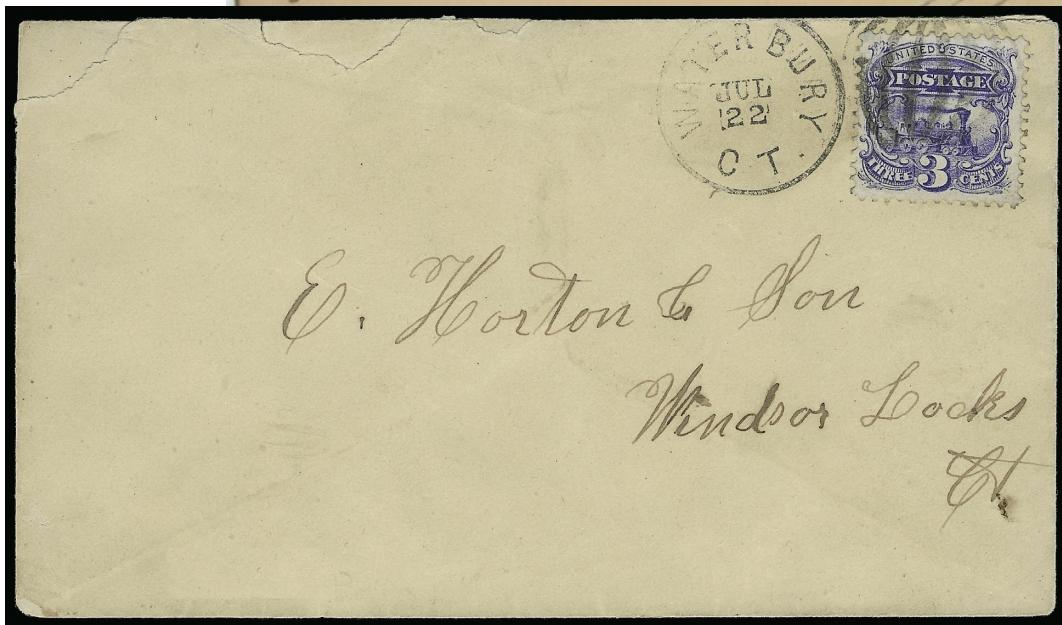 WATERBURY
JUL
22
CT.
UNITED STATES
POSTAGE
THREE 3 CENTS
E. Horton & Son
Windsor Locks
Ct.